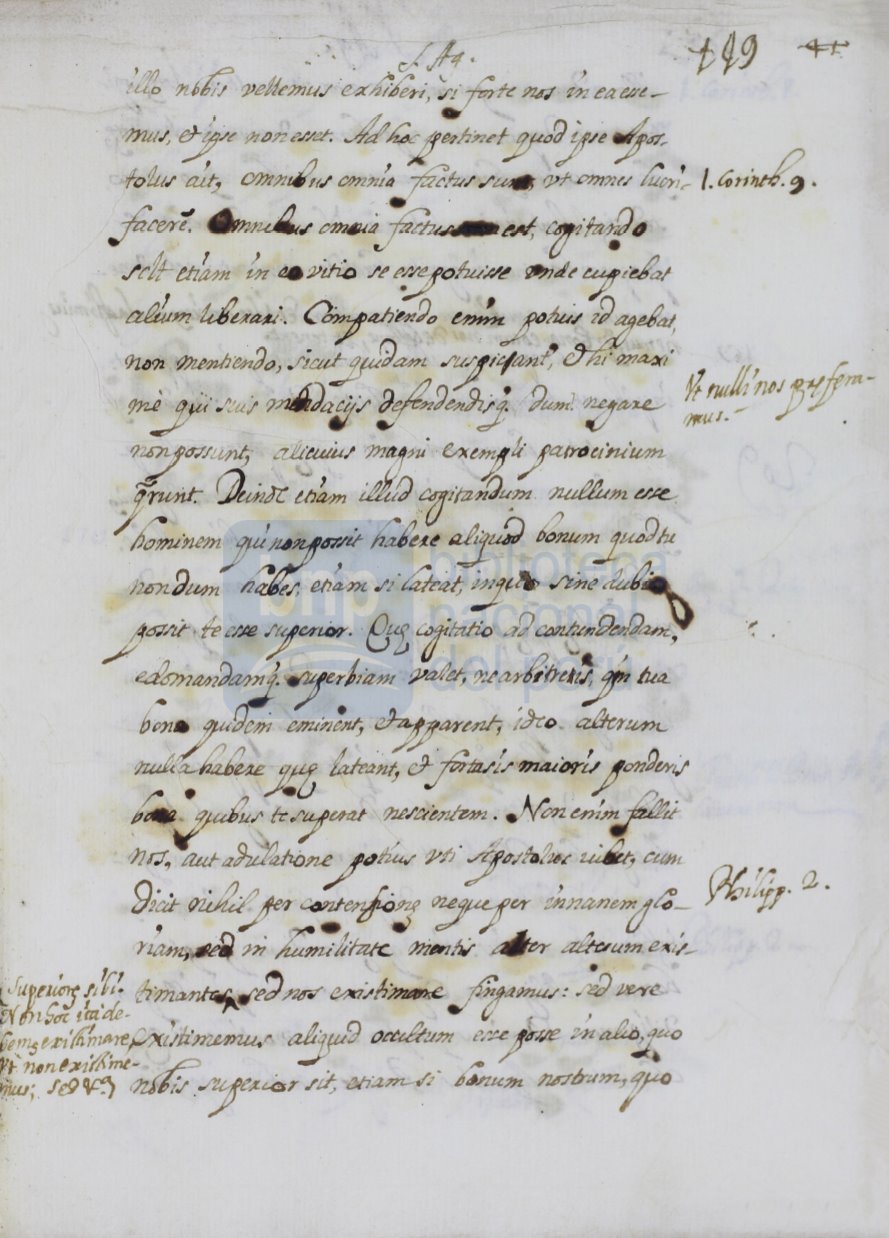 S. Ag.
119 41
illo nobis vellemus exhiberi, si forte nos in ea esse-
mus, & ipse non esset. Ad hoc pertinet quod ipse Apos-
tolus ait, omnibus omnia factus sum, vt omnes lucri-
1. Corinth. 9.
facerē. Omnibus omnia factus est, cogitando
sclt etiam in eo vitio se esse potuisse vnde cupiebat
alium liberari. Compatiendo enim potius id agebat,
non mentiendo, sicut quidam suspicant, & hi maxi
mè qui suis mendacijs defendendis q̃ dum negare
Vt nulli nos præfera-
mus.-
non possunt, alicuius magni exempli patrocinium
q̃runt. Deinde etiam illud cogitandum nullum esse
hominem qui non possit habere aliquod bonum quod tu
nondum habes, etiam si lateat, in quo sine dubio
possit te esse superior. Quę cogitatio ad contundendam,
edomandamq̃. superbiam valet, ne arbitreris, q̃m tua
bona quidem eminent, & apparent, ideo alterum
nulla habere quę lateant, & fortasis maioris ponderis
bona quibus te superat nescientem. Non enim fallit
nos, aut adulatione potius vti Apostolus iubet, cum
Dicit nihil per contensionę neque per innanem glo-
Philipp. 2.
riam, sed in humilitate mentis alter alterum exis-
timantes, sed nos existimare fingamus: sed vere
Superiorę sibi.
Non hoc ita de-
bemę existimare,
Vt non existime-
mus; sed
existimemus aliquid occultum esse posse in alio, quo
nobis superior sit, etiam si bonum nostrum, quo
bnp biblioteca
nacional
del perú